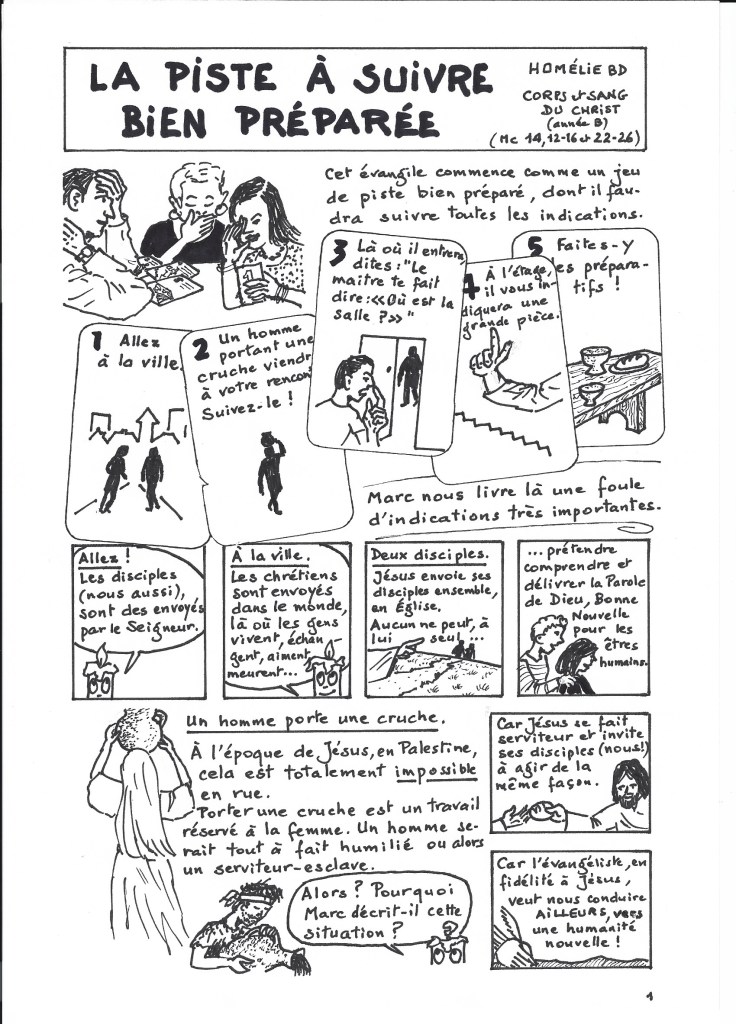 LA PISTE À SUIVRE
BIEN PRÉPARÉE
HOMÉLIE BD
CORPS et SANG
DU CHRIST
(année B)
(Mc 14,12-16 et 22-26)
Cet évangile commence comme un jeu
de piste bien préparé, dont il fau-
dra suivre toutes les indications.
1 Allez
à la ville
2 Un homme
portant une
cruche viendr
à votre rencon
Suivez-le !
3 Là où il entrera
dites : "Le
maître te fait
dire : «Où est la
salle ?» "
4 À l'étage,
il vous in-
diquera une
grande pièce.
5 Faites-y
es prépara-
tifs !
1
Marc nous livre là une foule
d'indications très importantes.
Allez !
Les disciples
(nous aussi),
sont des envoyés
par le Seigneur.
À la ville.
Les chrétiens
sont envoyés
dans le monde,
là où les gens
vivent, échan
gent, aiment,
meurent...
Deux disciples.
Jésus envoie ses
disciples ensemble,
en Église.
Aucun ne peut, à
lui seul ...
... prétendre
comprendre et
délivrer la Parole
de Dieu, Bonne
Nouvelle
pour les
êtres
humains.
Un homme porte une cruche.
À l'époque de Jésus, en Palestine,
cela est totalement impossible
en rue.
Porter une cruche est un travail
réservé à la femme. Un homme se-
rait tout à fait humilié ou alors
un serviteur-esclave.
Alors ? Pourquoi
Marc décrit-il cette
situation ?
Car Jésus se fait
serviteur et invite
ses disciples (nous!)
à agir de la
même façon.
Car l'évangéliste, en
fidélité à Jésus,
veut nous conduire
AILLEURS, vers
une humanité
nouvelle !
1